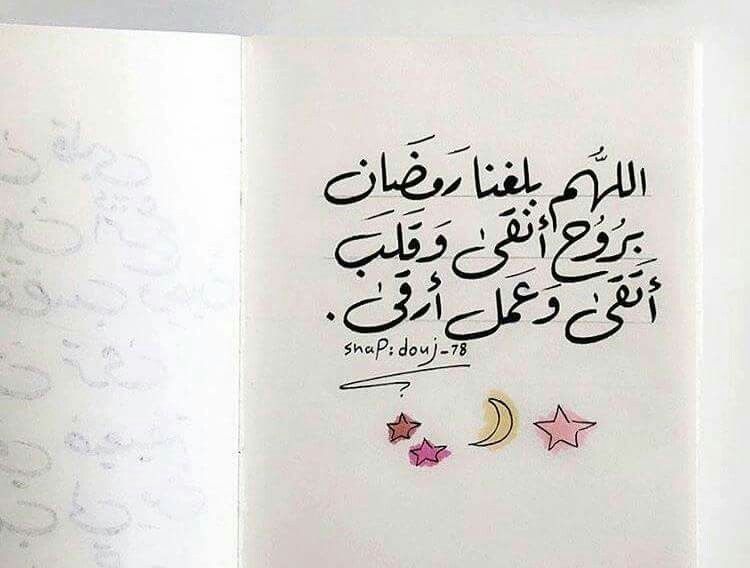 اللهُم بلغنا رَمَضَان
بِرُوُح أنقَىٰ وَقَلَبَ
أتَقَىٰ وَعَمَل أرقىٰ .
snap: douj_78